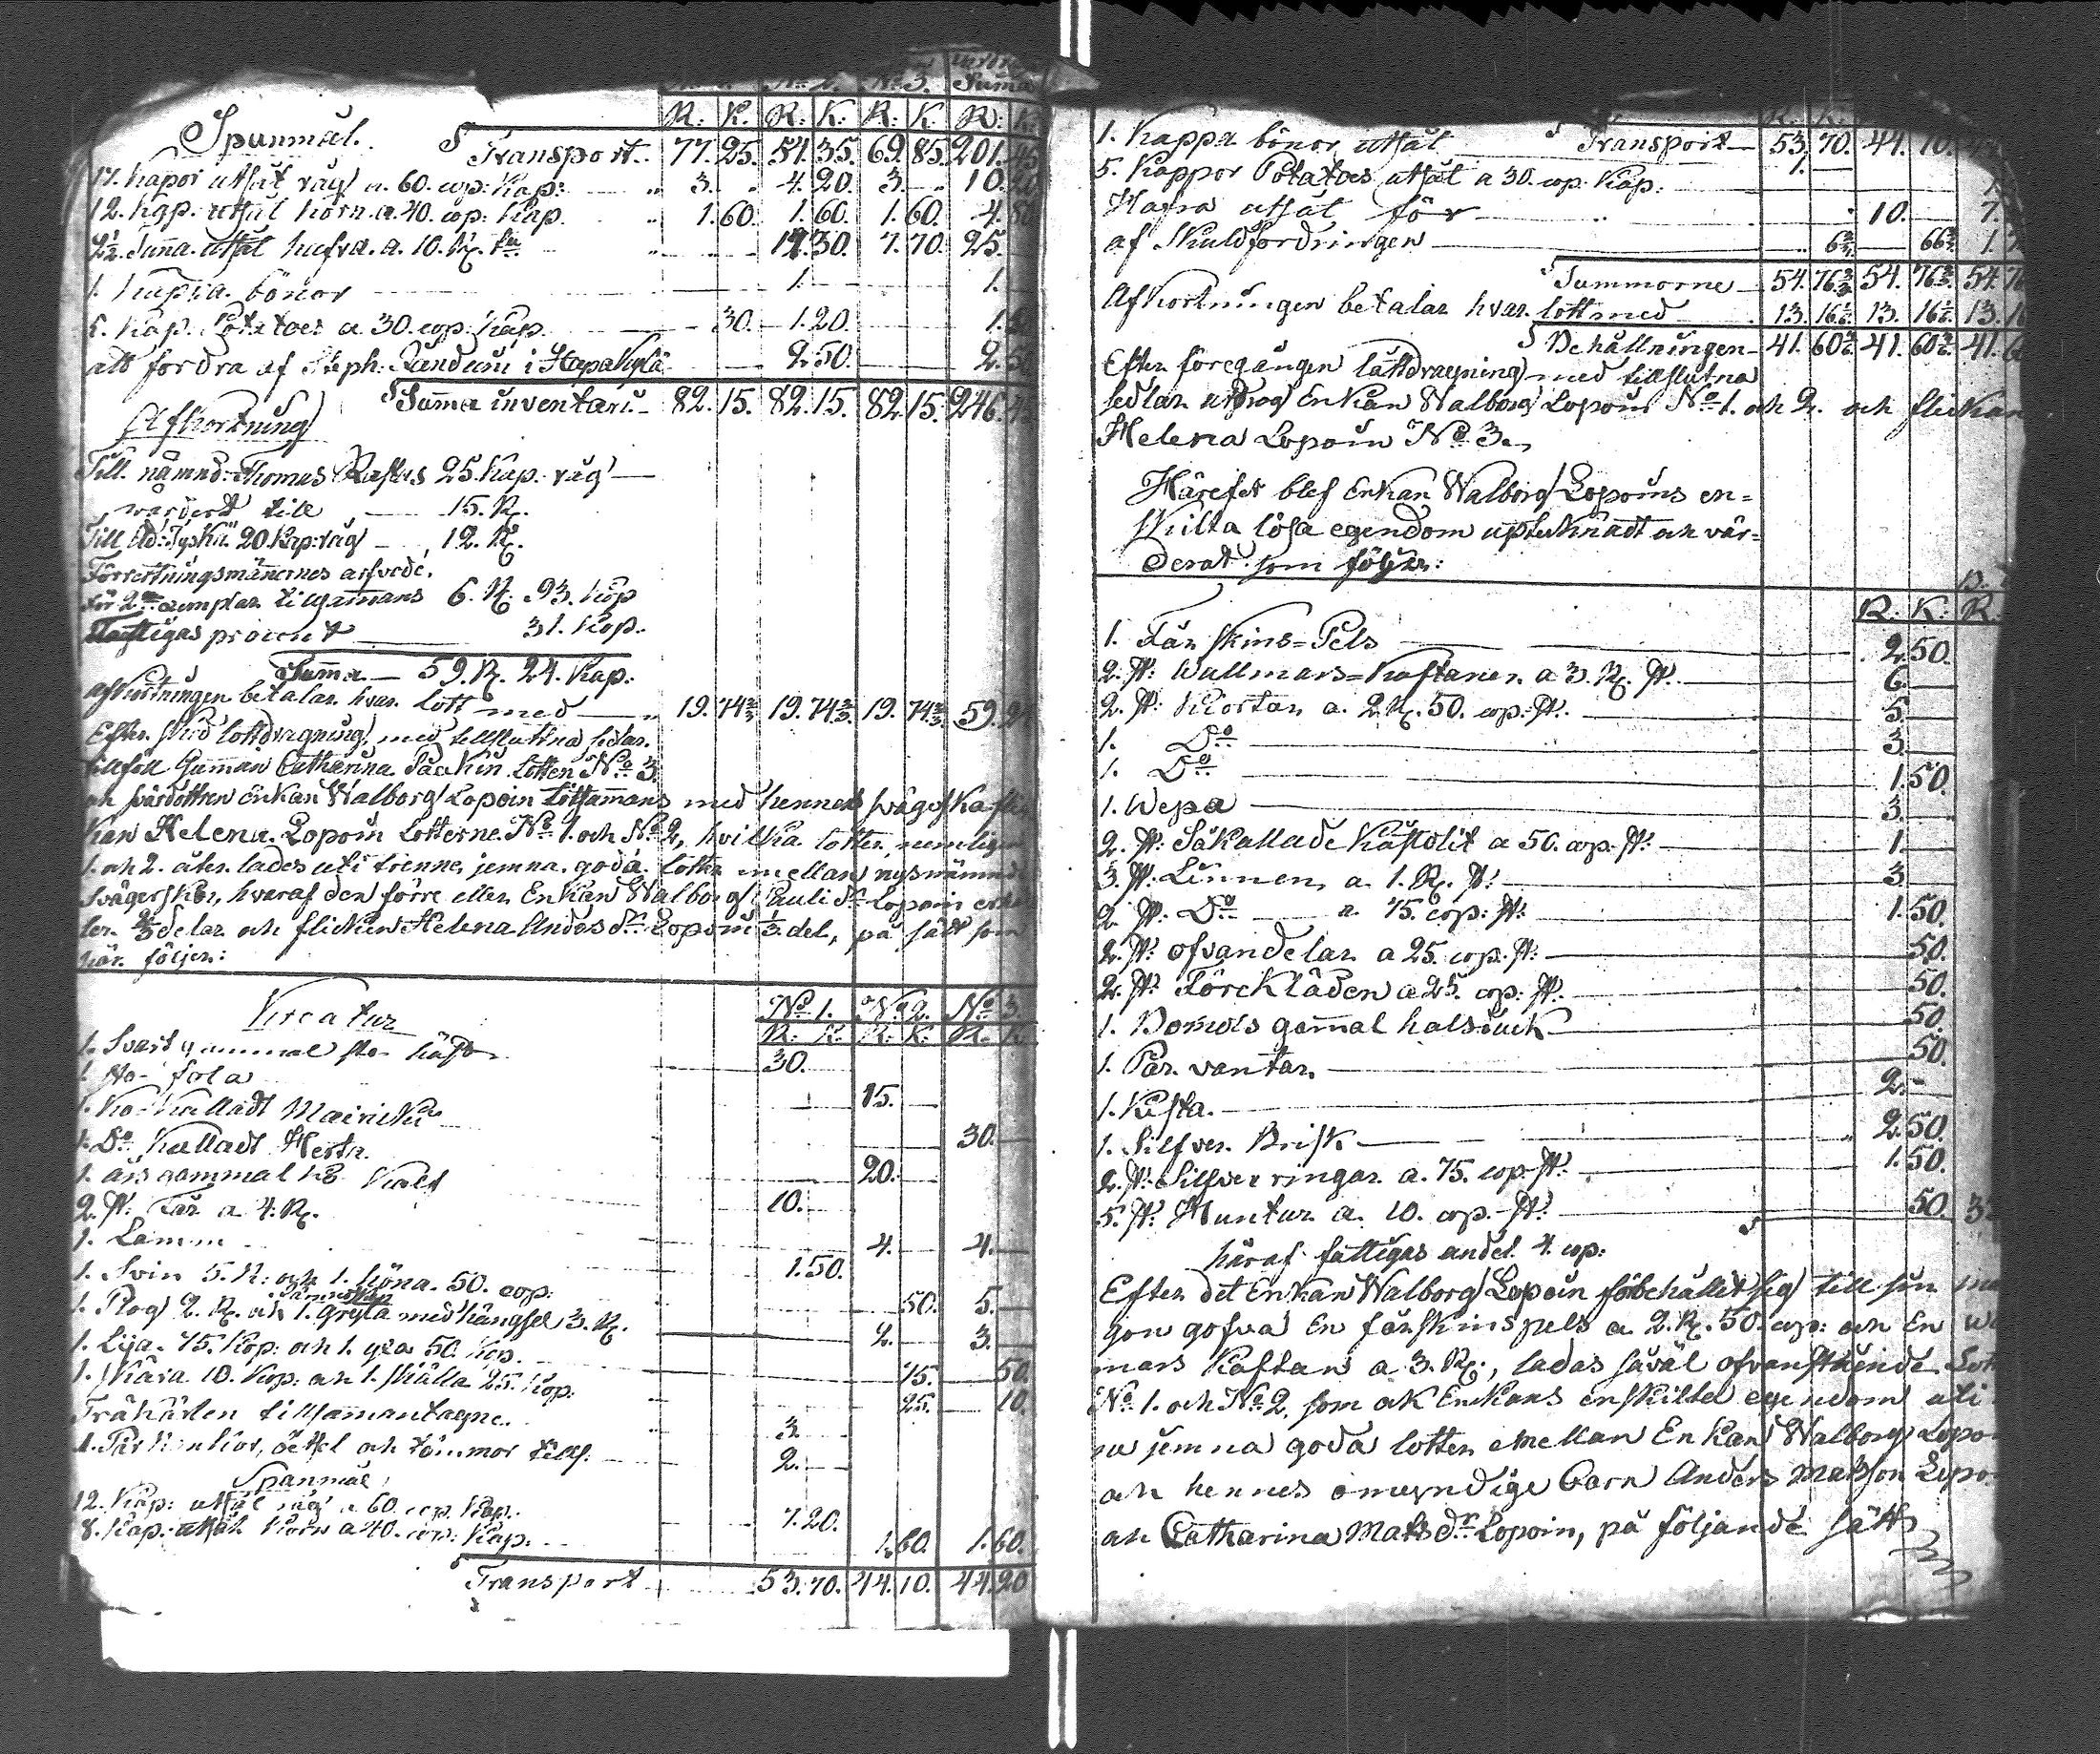 No 2. No 3. Summa
R: K. R: K: R: K. R: K.
Spanmål. Transport.. 77. 25. 54. 35. 69. 85. 201. 45
17. Kapor utsät råg a. 60. cop: Kap: 3. 4. 20. 3. 10. 20
12. Kap. utsät korn a. 40. cop: Kap. 1. 60. 1. 60. 1. 60. 4. 80
2½ Tunna utsät hafra. a. 10. R. 17. 30. 7. 70. 25.
1. Kappa bönor 1. 1.
5. Kap. Potatoes a 30. cop: Kap. 30. 1. 20. 1. 50
att fordra af Steph: i 2. 50. 2. 50
Suma inventarii 82. 15. 82. 15. 82. 15. 246. 45
Afkortning
Till nämnd: Thomas 25 Kap. råg
värderd till 15. R.
Till 20. Kap: råg 12. R.
Förrettningsmännernes arfvode.
för 2ne exemplar tillsammans 6. R. 93. Kop
Fattigas procent 31. Kop.
Suma 59. R. 24. Kop.
Afkortningen betalar hvar lott med 19. 74⅔ 19. 74⅔ 19. 74⅔ 59. 24
Efter skied lottdragning med tillslutna sedlar.
tillföll Gumman Catharina Lotten No 3
och svärdottren Enkan Walborg Lopoin tillsammans med hennes svägerska flic
kan Helena Lopoin Lotterne No 1. och No 2, hvilka lotter, nemligen
1. och 2. åter lades uti trenne jemna goda lotter imellan nysnämnde
Svägerskor, hvaraf den förre eller Enkan Walborg Pauli dr Lopoin
ler ⅔ delar och flickan Helena Anders dr Lopoin ⅓ del, på sätt som
här följer:
Kreatur No 1. No 2. No 3.
R: K: R: K: R: K.
1. Svart gammal sto häst 30.
1. sto fola 15.
1. Ko kallad Mairicki 30.
1. Do kallad Herta 20.
1. års gammal ko kalf 10.
2. st: Får a 4. R. 4. 4.
1. Lamm 1. 50.
1. Svin 5. R: och 1. höna. 50. cop: 50. 5.
1. Plog 2. R. och 1. gryta med hängsel 3. R. 2. 3.
1. Lija. 75. Kop: och 1. yxa 50. Kop. 75. 50.
1. Skära 10. Kop: och 1. skälla 25. Kop. 25. 10.
Trähärlen tillsammantagne. 3.
1. Par och tömmor tills. 2.
Spanmål
12. Kap: utsät råg a 60. cop. Kap. 7. 20.
8. Kap. utsät Korn a 40. cop: Kap. 1. 60. 1. 60.
Transport 53. 70. 44. 10. 44. 20
1. Kappa bönor utsät Transport 53. 70. 44. 10.
5. Kappor Potatoes utsät a 30. cop. Kap. 1.
Hafra utsät för 10. 7.
af Skuldfordringen 6⅔ 66⅔ 1.
Summorne 54. 76⅔ 54. 76⅔ 54. 76
Afkortningen betalar hvar lott med 13. 16⅙ 13. 16⅙ 13. 16
Behållningen 41. 60 41. 60 41. 6
Efter föregången låttdragning med tillslutna
sedlar utdrog Enkan Walborg Lopoin No 1. och 2. och flickan
Helena Lopoin No 3.
Härefter blef Enkan Walborg Lopoins en=
skilta lösa egendom uptecknadt och vär=
derat som följer:
R: K: R.
1. Får skins=Pels 2. 50.
2. st: Wallmars=Kaftaner a 3. R. st. 6.
2. st: Kiortar a. 2. R. 50. cop: st: 5.
1. Do 3.
1. Do 1. 50.
1. Wepa 3.
2. st: Såkallade a 50. cop. st: 1.
3. st: Linnen a 1. R. st: 3.
2. st: Do a. 75. cop: st: 1. 50.
2. st: ofvandelar a 25. cop. st: 50.
2. st: Förkläden a 25. cop: st. 50.
1. Bomuls gammal halsduck 50.
1. Par vantar. 50.
1. Kista. 2.
1. Silfver Brisk 2. 50.
2. st: Silfver ringar a. 75. cop. st: 1. 50.
5. st: Huntur a. 10. cop. st: 50. 3
häraf fattigas andel 4. cop:
Efter det Enkan Walborg Lopoin förbehållit sig till sin
gon gofva En fårskinspels a 2. R. 50. cop: och En
mars Kaftan a 3. R:, lades såväl ofvanstående
No 1. och No 2. som ock Enkans enskilta egendom uti
jemna goda lotter emellan Enkan Walborg Lopo
och hennes omyndige Barn Anders Matsson Lopo
och Catharina Mats dr Lopoin, på följande sätt